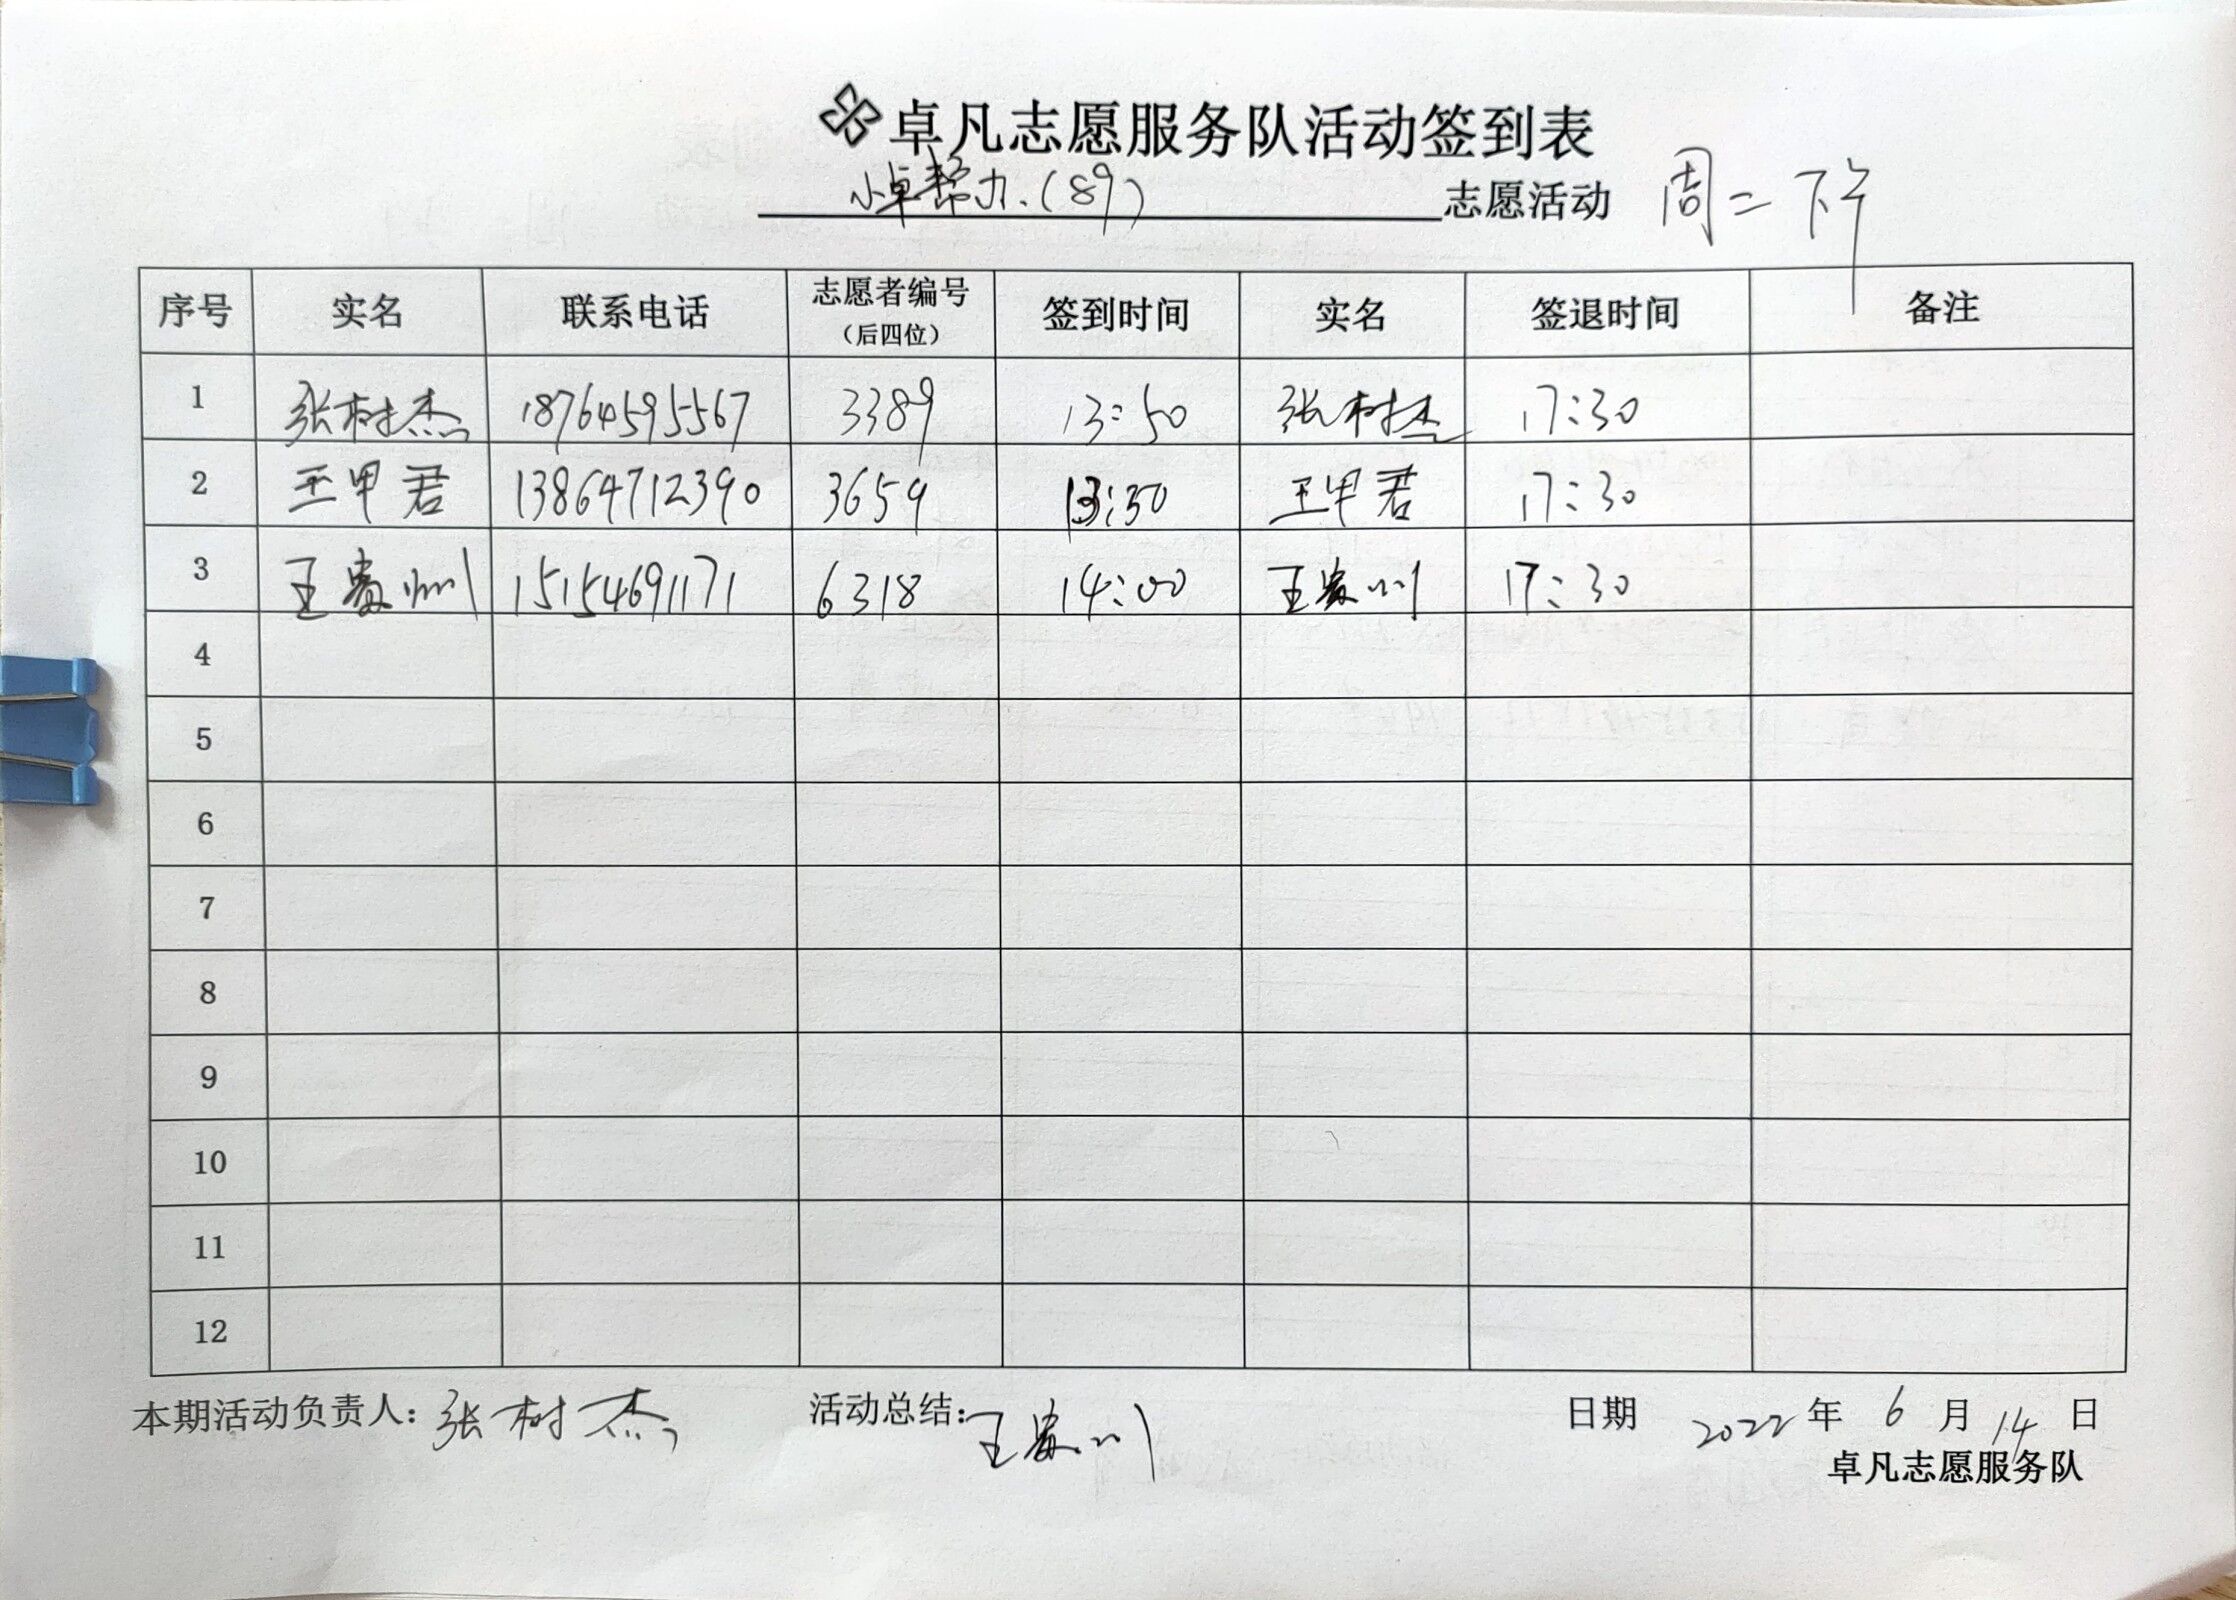 卓凡志愿服务队活动签到表
小卓帮办.(89) 志愿活动 周二下午
序号 实名 联系电话 志愿者编号（后四位） 签到时间 实名 签退时间 备注
1 张树杰 18764595567 3389 13:50 张树杰 17:30
2 王甲君 13864712390 3659 13:50 王甲君 17:30
3 王 15154691171 6318 14:00 王 17:30
4
5
6
7
8
9
10
11
12
本期活动负责人：张树杰 活动总结：王 日期 2022年6月14日
卓凡志愿服务队